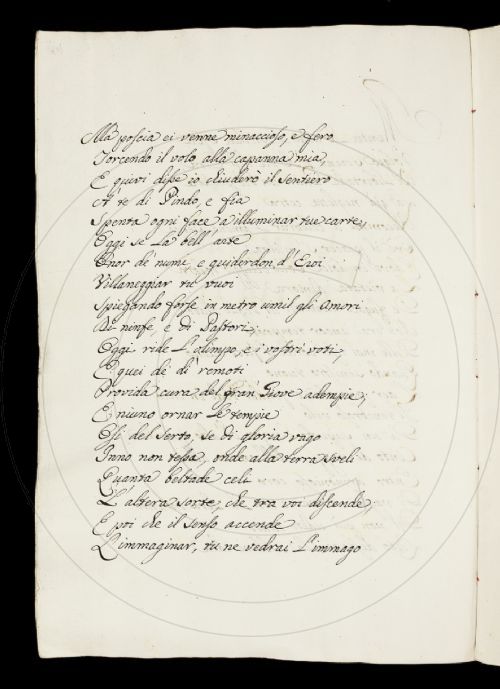 Alla poscia ei venne minaccioso, e fero
Torcendo il volo alla capanna mia,
E quivi disse io chiuderò il sentiero
A' te di Pindo, e fia
Spenta ogni face a illuminar tue carte;
Oggi se la bell' arte
Onor de' numi, e guiderdon d' Eroi
Villaneggiar tu vuoi
Spiegando forse in metro umil gli Amori
Di ninfe, e di Pastori;
Oggi ride L'olimpo, e i vostri voti,
E quei de' di remoti
Provida cura del gran Giove adempie;
E niuno ornar le tempie
Osi del serto, se di gloria vago
Inno non tessa, onde alla terra sveli
Quanta beltade celi
L'altera sorte, che tra voi discende;
E poi che il senso accende
L'immaginar, tu ne vedrai L'immago